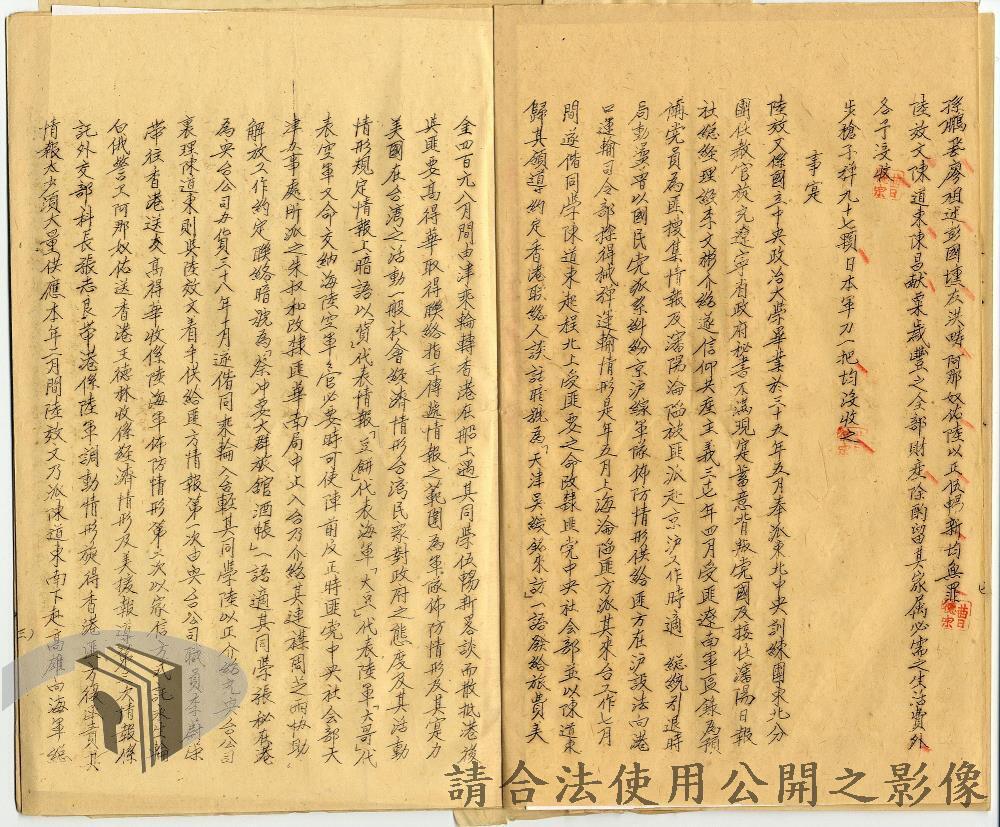 孫鵬基廖祖述彭國壎左洪疇阿那奴佑陸以正伍暢新均無罪
陸效文陳道東陳昌獻栗歲豐之全部財產除酌留其家屬必需之生活費外
各予沒收
步槍子彈九十七顆日本軍刀一把均沒收之
事實
陸效文係國立中央政治大學畢業於三十五年五月奉派東北中央訓練團東北分
團任教官旋充遼寧省政府秘書不滿現實蓄意背叛党國及接任瀋陽日報
社總經理經李文彬介紹遂信仰共產主義三十七年四月受匪遼南軍區錄為預
備党員為匪搜集情報及瀋陽淪陷被匪派赴京沪工作時適 總統引退時
局動盪乃以國民党派系糾紛京沪綏軍隊佈防情形供給匪方在沪設法向港
口運輸司令部探得械彈運輸情形是年五月上海淪陷匪方派其來台工作七月
間遂偕同學陳道東起程北上受匪要之命改隸匪党中央社会部並以陳道東
歸其領導約定香港聯絡人談話暗號為「天津吳綬銘來訪」一語發給旅費美
金四百元八月間由津乘輪轉香港在船上遇其同學伍暢新畧談而散抵港後
與匪要高得華取得聯絡指示傳遞情報之範圍為軍隊佈防情形及其實力
美國在台湾之活動一般社會經濟情形台湾民衆對政府之態度及其活動
情形規定情報上暗語以「貨」代表情報「豆餅」代表海軍「大豆」代表陸軍「大哥」代
表空軍又命交納海陸空軍々官必要時可使陣前反正時匪党中央社会部天
津办事處所派之朱叔和改隸匪華南局中止入台乃介紹其連襟周芝雨協助
解放工作約定聯絡暗號為「蔡冲要大群旅館酒帳」一語適其同學張秘在港
為央台公司办貨三十八年十月遂偕同乘輪入台輕其同學陸以正介紹充央台公司
襄理陳道東則與陸效文着手供給匪方情報第一次由央台公司職員李蔚保
帶往香港送交高得華收係陸海軍佈防情形第二次以家信方式託永生輪
白俄勞工阿那奴佑送香港王德林收係經濟情形及美援報導第三次情報係
託外交部科長張志良帶港係陸軍調動情形旋得香港匪方復函責其
情報太少須大量供應本年二月間陸效文乃派陳道東南下赴高雄向海軍總
三)
請合法使用公開之影像